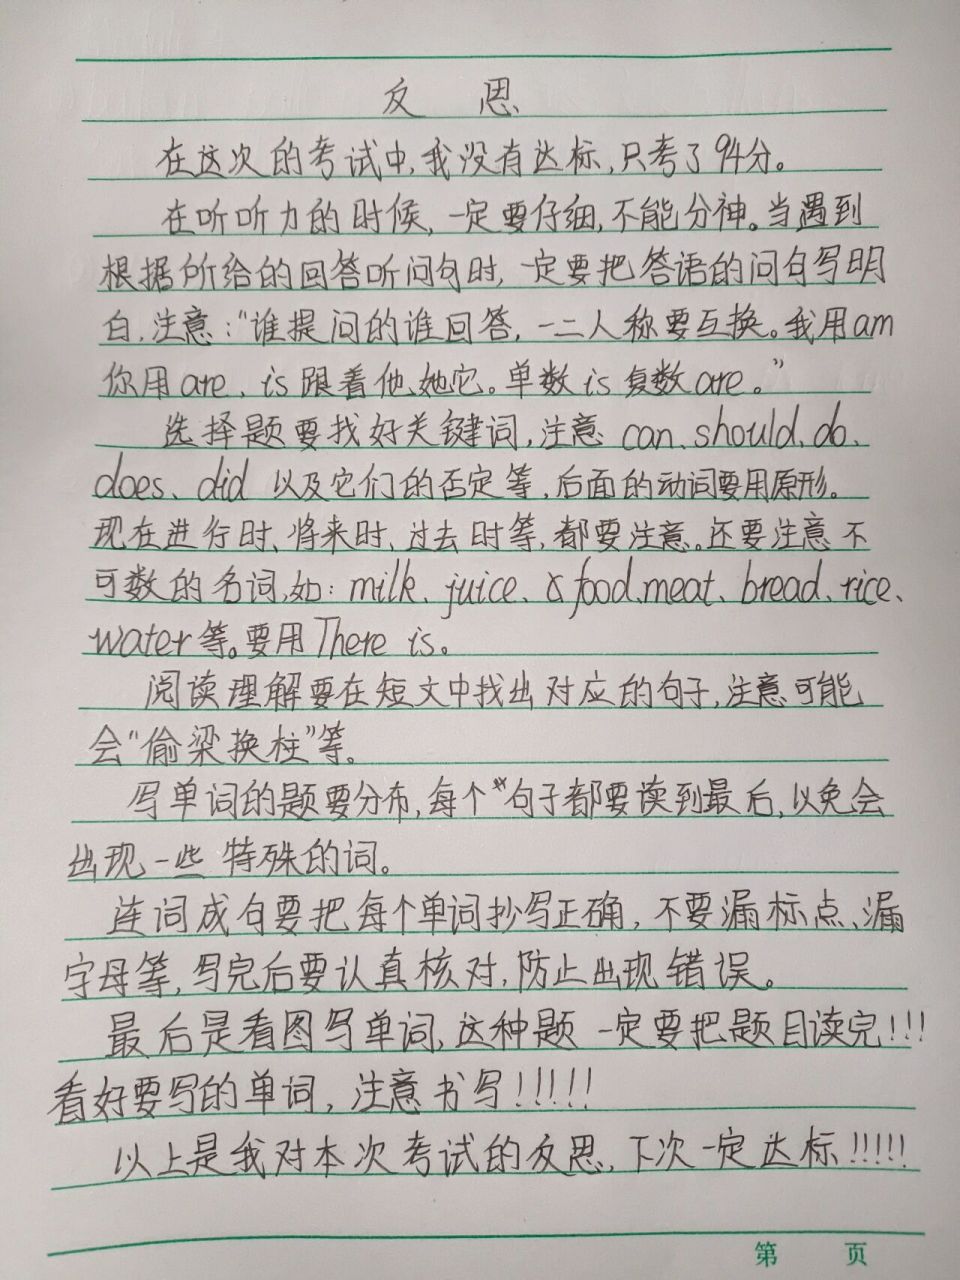 反 思
在这次的考试中,我没有达标,只考了94分。
在听听力的时候,一定要仔细,不能分神。当遇到
根据所给的回答听问句时,一定要把答语的问句写明
白,注意:“谁提问的谁回答,一二人称要互换。我用am
你用are,is跟着他、她它。单数is复数are。”
选择题要找好关键词,注意can、should、do、
does、did 以及它们的否定等,后面的动词要用原形。
现在进行时、将来时、过去时等,都要注意。还要注意不
可数的名词,如:milk、juice、food、meat、bread、rice、
water等。要用There is。
阅读理解要在短文中找出对应的句子,注意可能
会“偷梁换柱”等。
写单词的题要分布,每个句子都要读到最后,以免会
出现一些特殊的词。
连词成句要把每个单词抄写正确,不要漏标点、漏
字母等,写完后要认真核对,防止出现错误。
最后是看图写单词,这种题一定要把题目读完!!!
看好要写的单词,注意书写!!!!!
以上是我对本次考试的反思,下次一定达标!!!!!
第 页